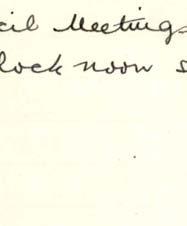 cil Meetings
lock noon s